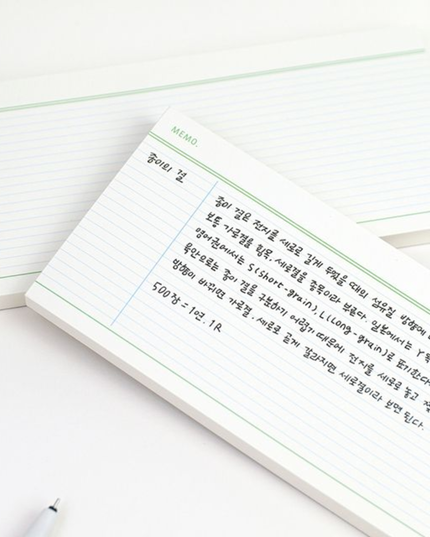 MEMO.
종이의 결
종이 결은 전지를 세로로 길게 두었을 때의 섬유질 방향에
보통 가로결을 횡목, 세로결을 종목이라 부른다. 일본에서는 Y
영어권에서는 S(Short-grain), L(Long-grain)로 표기한다
육안으로는 종이 결을 구분하기 어렵기 때문에 전지를 세로로 놓고
방향이 바뀌면 가로결, 세로로 곧게 갈라지면 세로결이라 보면 된다.
500장 = 1연. 1R